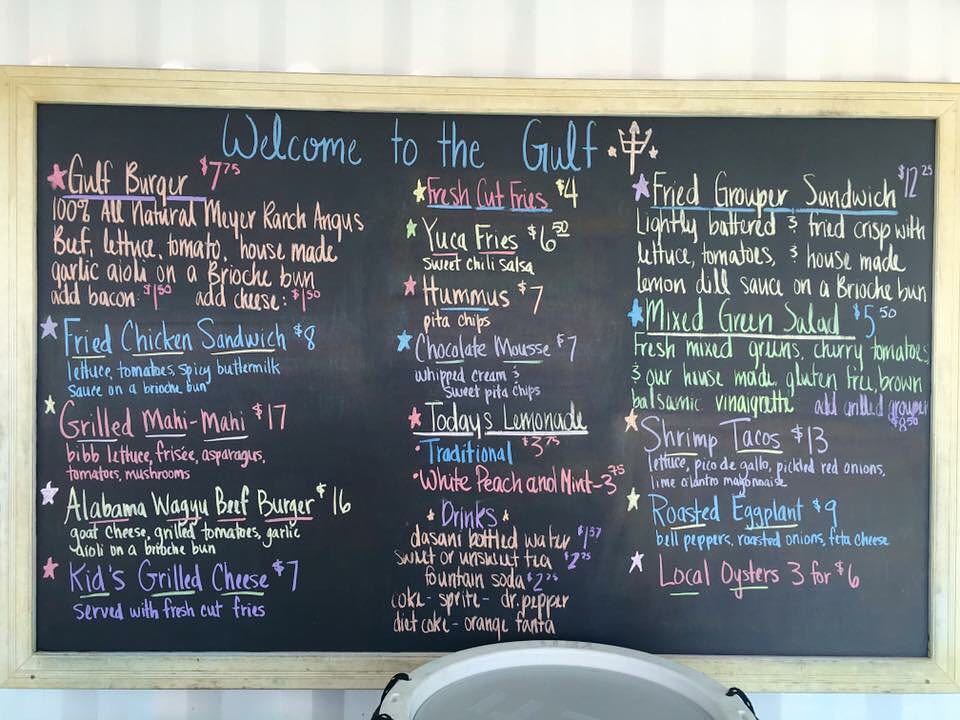 Welcome to the Gulf
Gulf Burger $7.75
100% All Natural Meyer Ranch Angus
Beef, lettuce, tomato, house made
garlic aioli on a Brioche bun
add bacon: $1.50 add cheese: $1.50
Fried Chicken Sandwich $8
lettuce, tomatoes, spicy buttermilk
sauce on a brioche bun
Grilled Mahi-Mahi $17
bibb lettuce, frisée, asparagus,
tomatoes, mushrooms
Alabama Wagyu Beef Burger $16
goat cheese, grilled tomatoes, garlic
aioli on a brioche bun
Kid's Grilled Cheese $7
served with fresh cut fries
Fresh Cut Fries $4
Yuca Fries $6.50
sweet chili salsa
Hummus $7
pita chips
Chocolate Mousse $7
whipped cream &
sweet pita chips
Today's Lemonade
• Traditional $3.75
• White Peach and Mint - 3.75
Drinks
dasani bottled water $1.37
sweet or unsweet tea $2.25
fountain soda $2.25
coke - sprite - dr. pepper
diet coke - orange fanta
Fried Grouper Sandwich $12.25
Lightly battered & fried crisp with
lettuce, tomatoes, & house made
lemon dill sauce on a Brioche bun
Mixed Green Salad $5.50
Fresh mixed greens, cherry tomatoes,
& our house made, gluten free, brown
balsamic vinaigrette add grilled grouper
$8.50
Shrimp Tacos $13
lettuce, pico de gallo, pickled red onions,
lime cilantro mayonnaise
Roasted Eggplant $9
bell peppers, roasted onions, feta cheese
Local Oysters 3 for $6